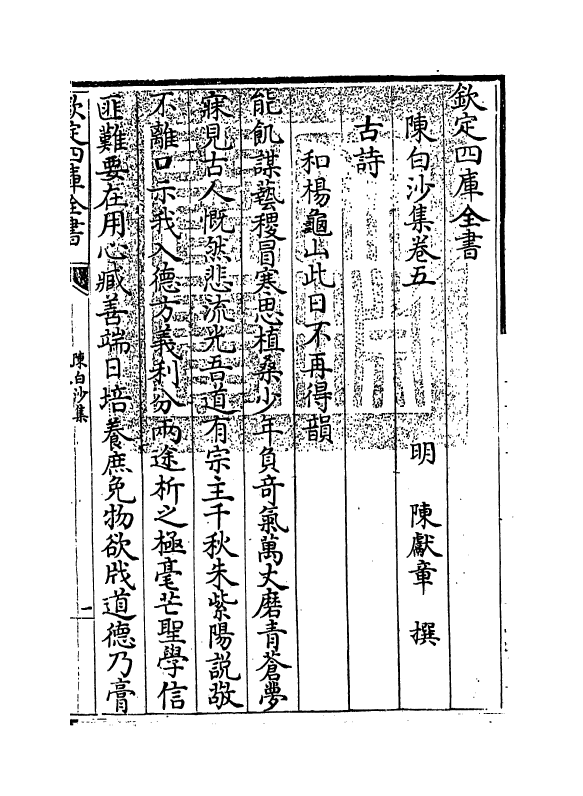 欽定四庫全書
陳白沙集卷五
明 陳獻章 撰
古詩
和楊龜山此日不再得韻
能飢謀藝稷冒寒思植桑少年負竒氣萬丈磨青蒼夢
寐見古人慨然悲流光吾道有宗主千秋朱紫陽說敬
不離口示我入德方義利分兩途析之極毫芒聖學信
匪難要在用心臧善端日培養庶免物欲戕道德乃膏
欽定四庫全書
陳白沙集
一